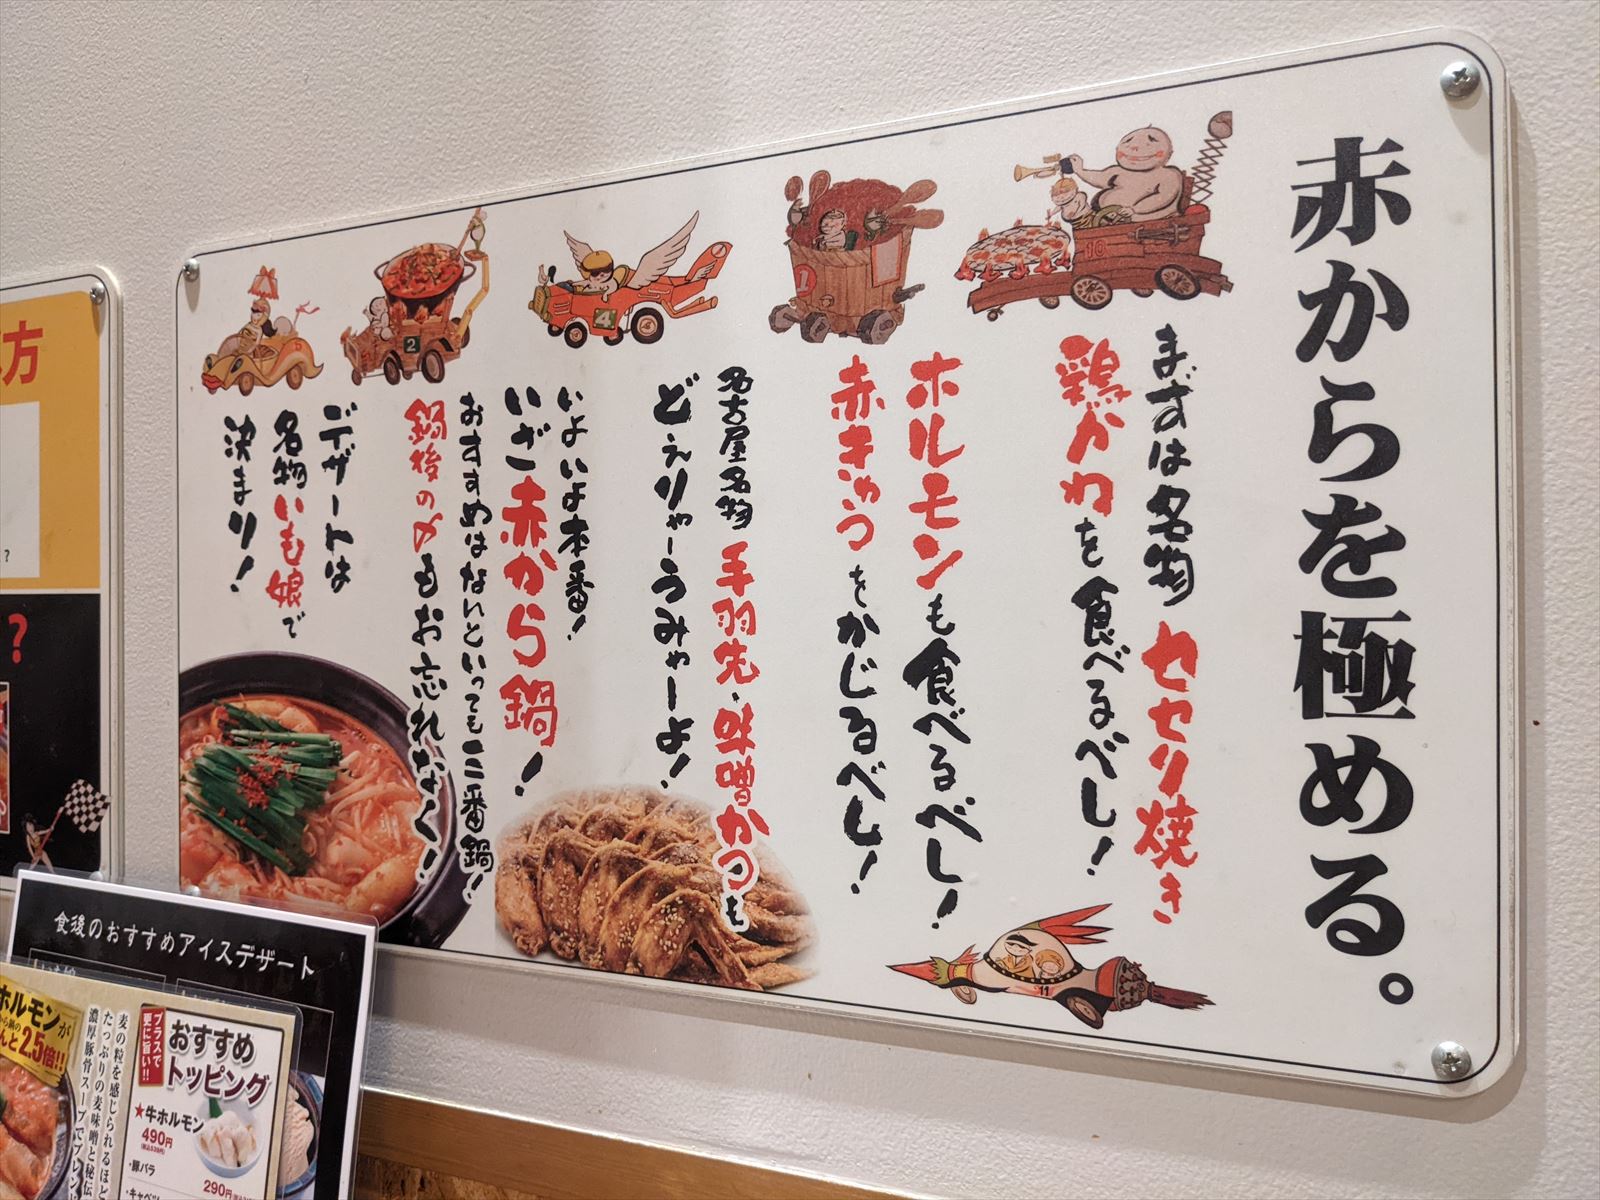 赤からを極める。
まずは名物 セセリ焼き
鶏かわを食べるべし!
ホルモンも食べるべし!
赤きゅうをかじるべし!
名古屋名物 手羽先・味噌かつも
どえりゃーうみゃーよ!
いよいよ本番!
いざ赤から鍋!
おすすめはないといっても三番鍋!
鍋後の〆もお忘れなく!
デザートは
名物いも娘で
決まり!
10
1
4
2
5
11
方
?
?
食後のおすすめアイスデザート
ホルモンが
2.5倍!!
麦の粒を感じられるほど
たっぷりの麦味噌と秘伝
濃厚豚骨スープでブレンド
プラスで
更に旨い!!
おすすめ
トッピング
★牛ホルモン
490円
・豚バラ
290円
・キャベツ